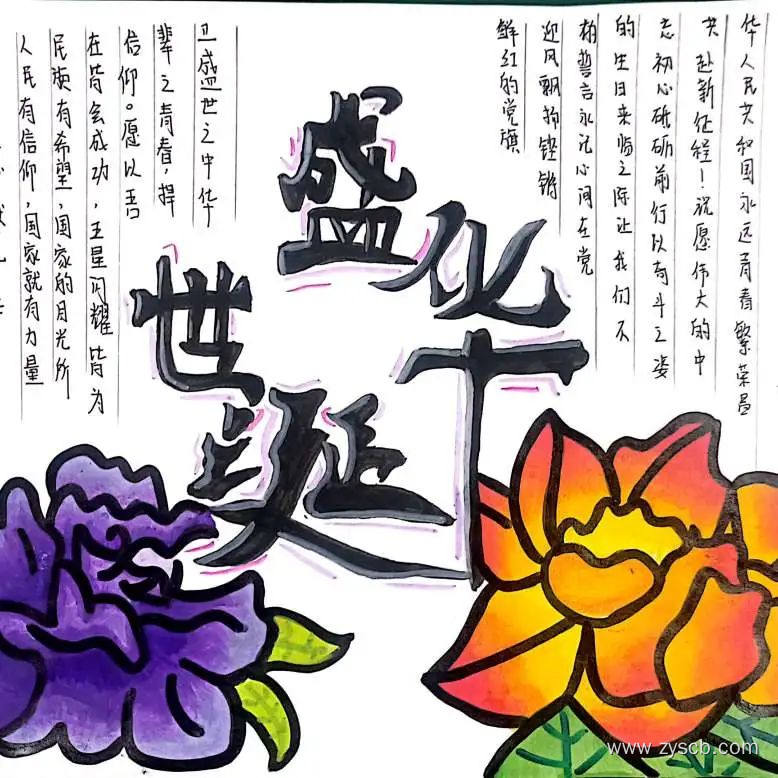 盛世华诞
人民有信仰,国家就有力量
民族有希望,国家的目光所
在皆会成功,五星闪耀皆为
信仰。愿以吾
辈之青春,捍
卫盛世之中华
鲜红的党旗
迎风飘扬铿锵
柏誓言永记心间在党
的生日来临之际让我们不
忘初心砥砺前行以奋斗之姿
共赴新征程!祝愿伟大的中
华人民共和国永远青春繁荣昌
www.zyscb.com